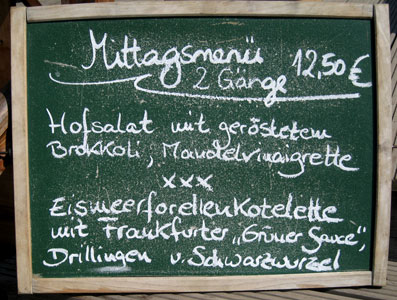 Mittagsmenü 12,50 €
2 Gänge
Hofsalat mit geröstetem
Brokkoli, Mandelvinaigrette
xxx
Eismeerforellenkotelette
mit Frankfurter „Grüner Sauce",
Drillingen u. Schwarzwurzel